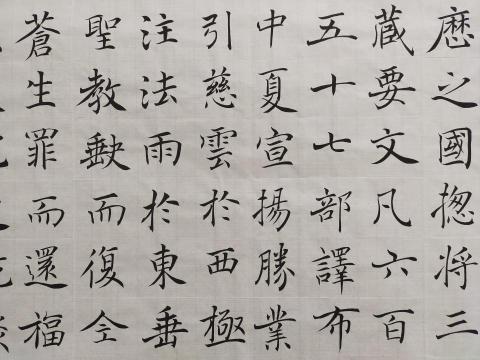 厯之國揔將三
藏要文凡六百
五十七部譯布
中夏宣揚勝業
引慈雲於西極
注法雨於東垂
聖教缺而復全
蒼生罪而還福